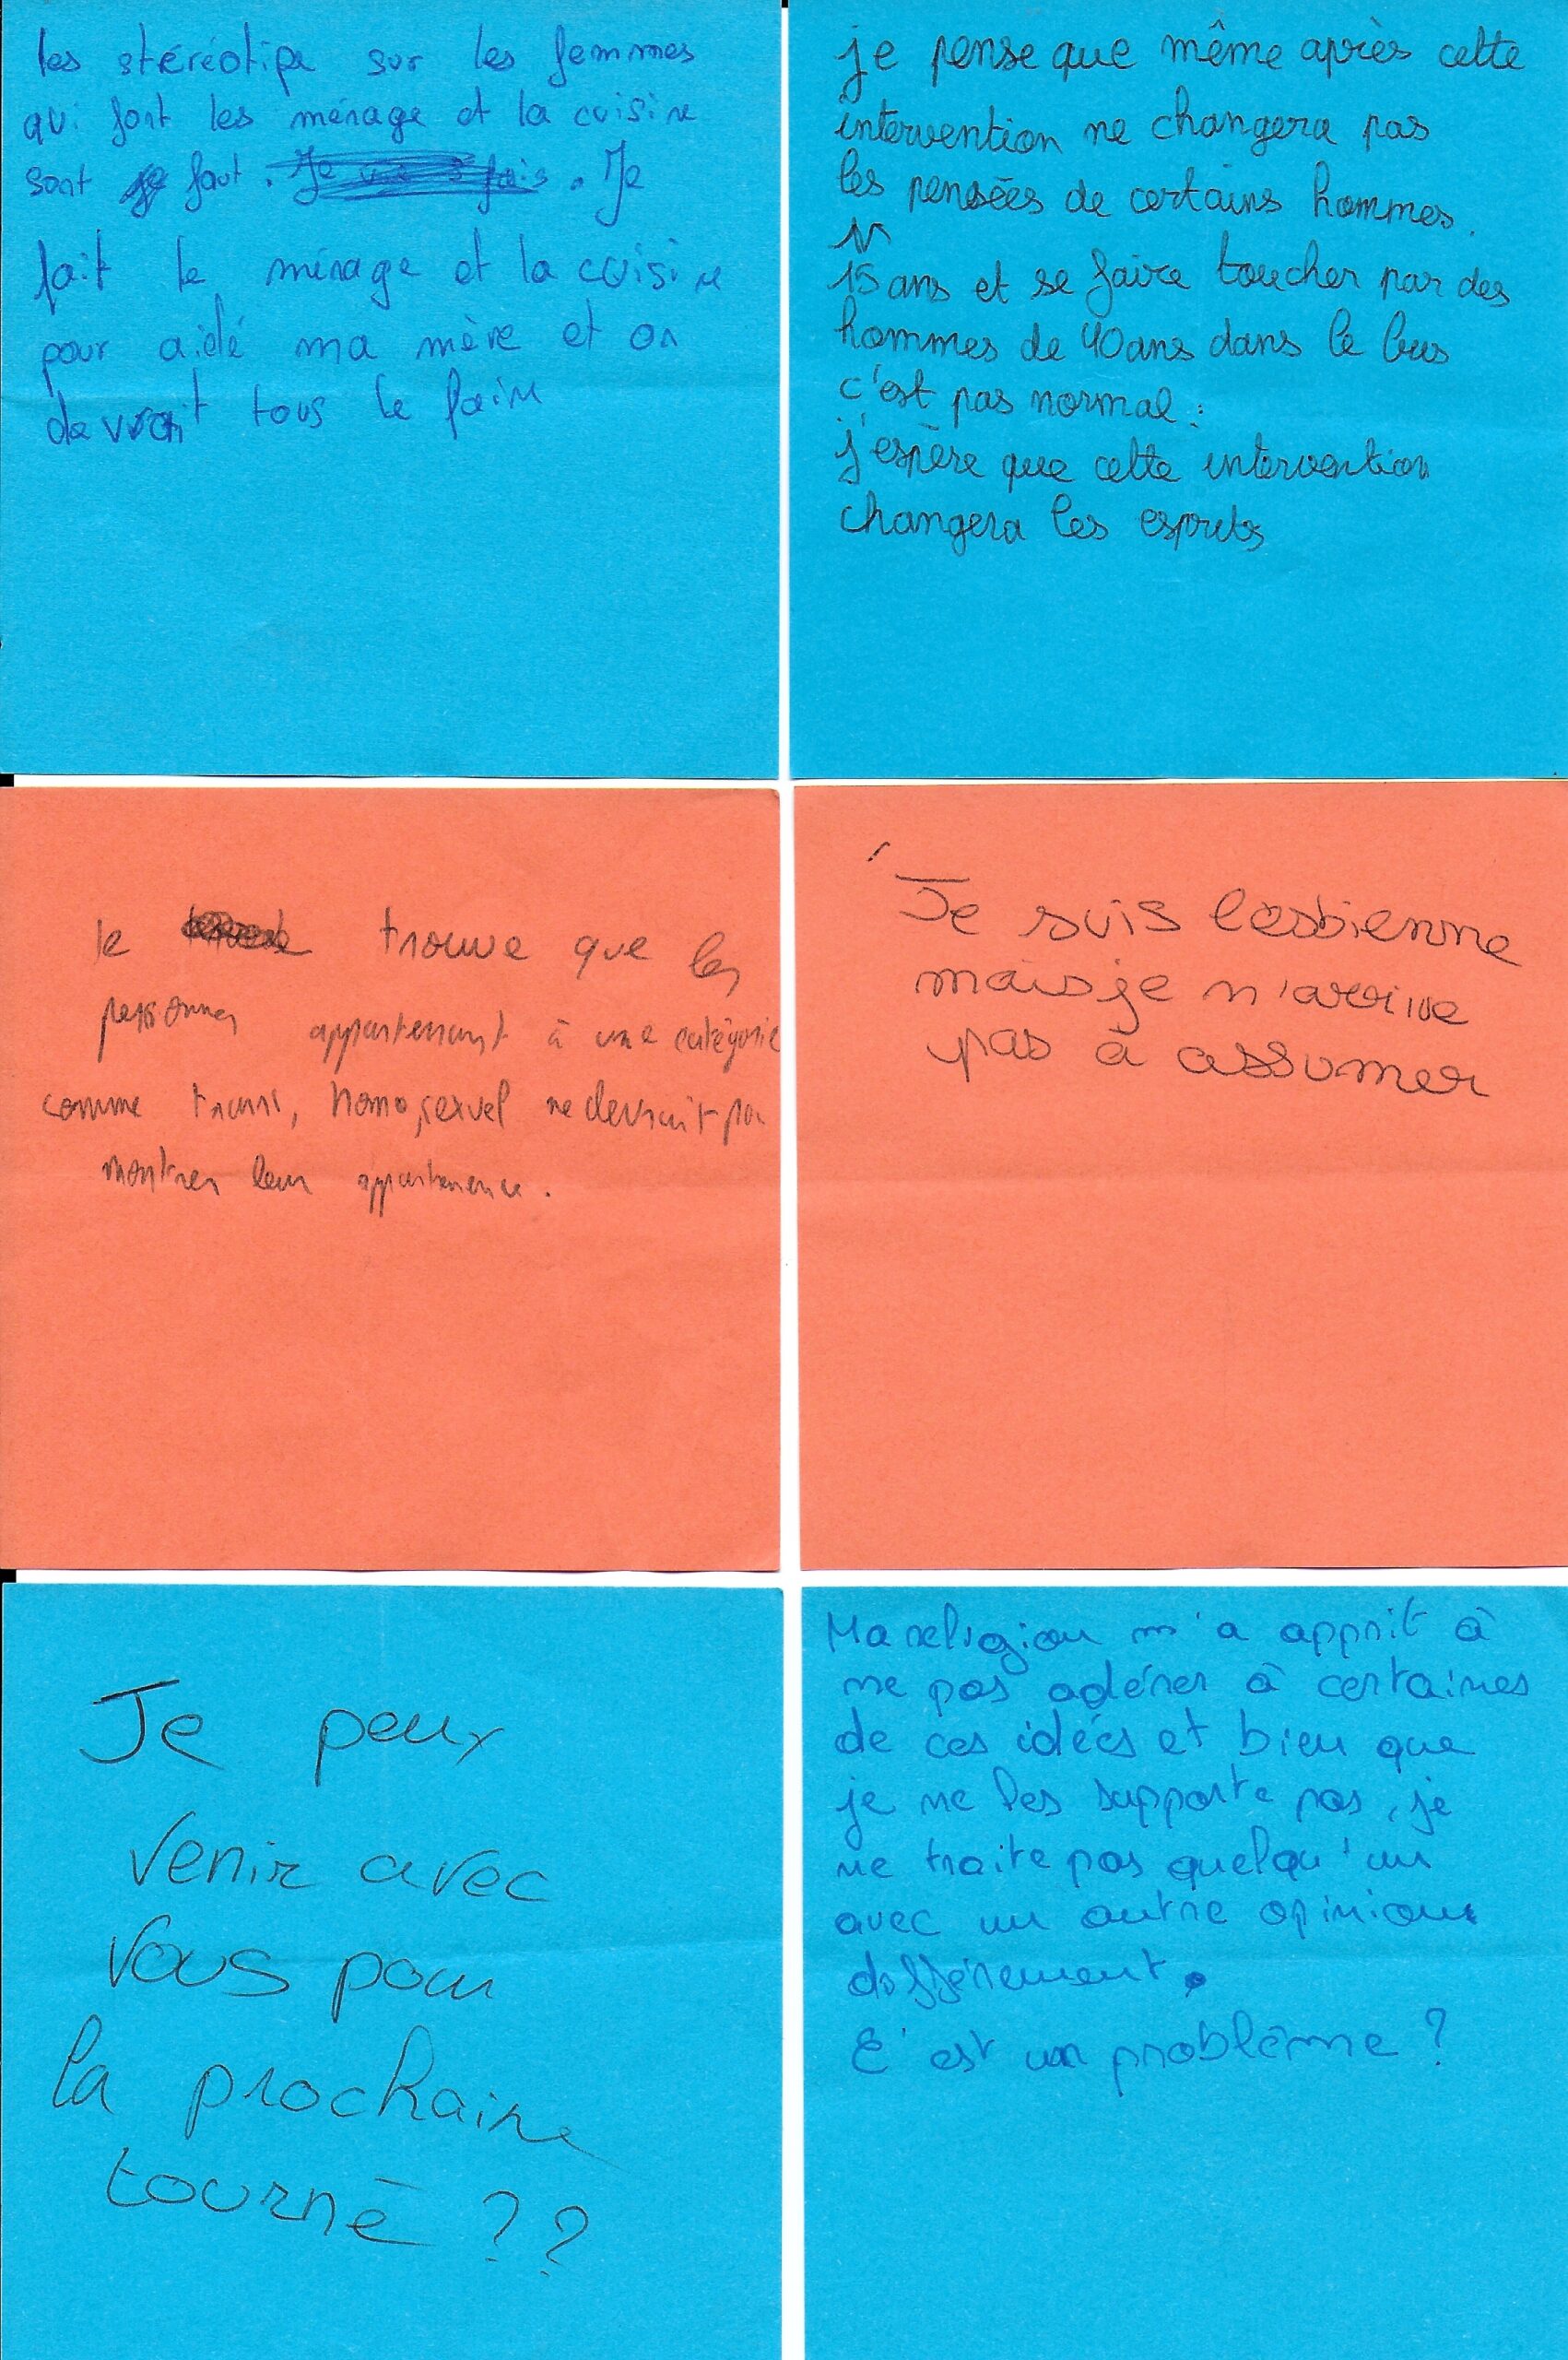 les stéréotipe sur les femmes
qui font les ménage et la cuisine
sont faut. Je
fait le ménage et la cuisine
pour aidé ma mère et on
devrait tous le faire
je pense que même après cette
intervention ne changera pas
les pensées de certains hommes.
15 ans et se faire toucher par des
hommes de 40 ans dans le bus
c'est pas normal :
j'espère que cette intervention
changera les esprits
Je trouve que les
personnes appartenant à une catégorie
comme trans, homosexuel ne devrait pas
montrer leur appartenence.
Je suis lesbienne
mais je n'arrive
pas à assumer
Je peux
venir avec
vous pour
la prochaine
tourné ??
Ma religion m'a apprit à
ne pas adérer à certaines
de ces idées et bien que
je ne les supporte pas, je
ne traite pas quelqu'un
avec un autre opinion
différement.
C'est un problème ?